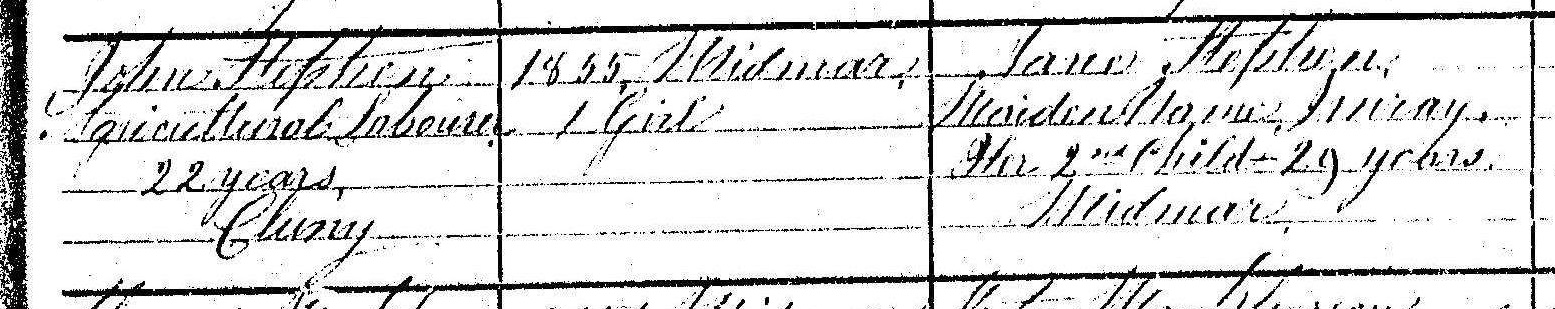 John Stephen
Agricultural Labourer
22 years,
Cluny
1855, Midmar,
1 Girl
Jane Stephen,
Maiden Name
Her 2nd Child - 29 years.
Midmar,